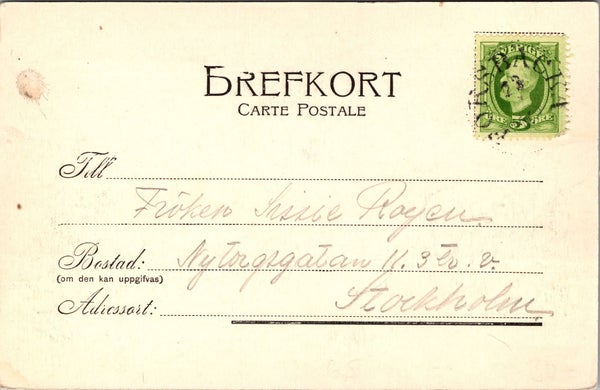 BREFKORT
CARTE POSTALE
SVERIGE
5
ÖRE
Till
Fröken Sissie
Bostad: Nytorgsgatan 11. 3 tr. v.
(om den kan uppgifvas)
Adressort: Stockholm